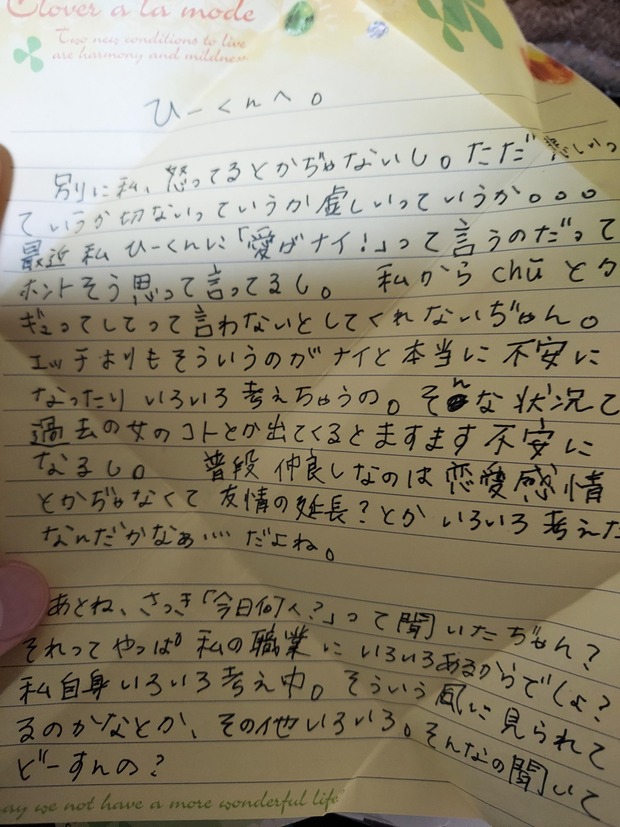 Clover a la mode
Two new conditions to live
are harmony and mildness.
ひーくんへ。
別に私、怒ってるとかぢゃないし。ただ悲しいっ
ていうか切ないっていうか虚しいっていうか。。。
最近私ひーくんに「愛がナイ!」って言うのだって
ホントそう思って言ってるし。 私からchūとか
ギュってしてって言わないとしてくれないぢゃん。
エッチよりもそういうのがナイと本当に不安に
なったりいろいろ考えちゃうの。そんな状況で
過去の女のコトとか出てくるとますます不安に
なるし。 普段仲良しなのは恋愛感情
とかぢゃなくて友情の延長?とかいろいろ考えた
なんだかなぁ…‥だよね。
あとね、さっき「今日何人?」って聞いたぢゃん?
それってやっぱ私の職業にいろいろあるからでしょ?
私自身いろいろ考え中。そういう風に見られて
るのかなとか、その他いろいろ。そんなの聞いて
どーすんの?
ay we not have a more wonderful life